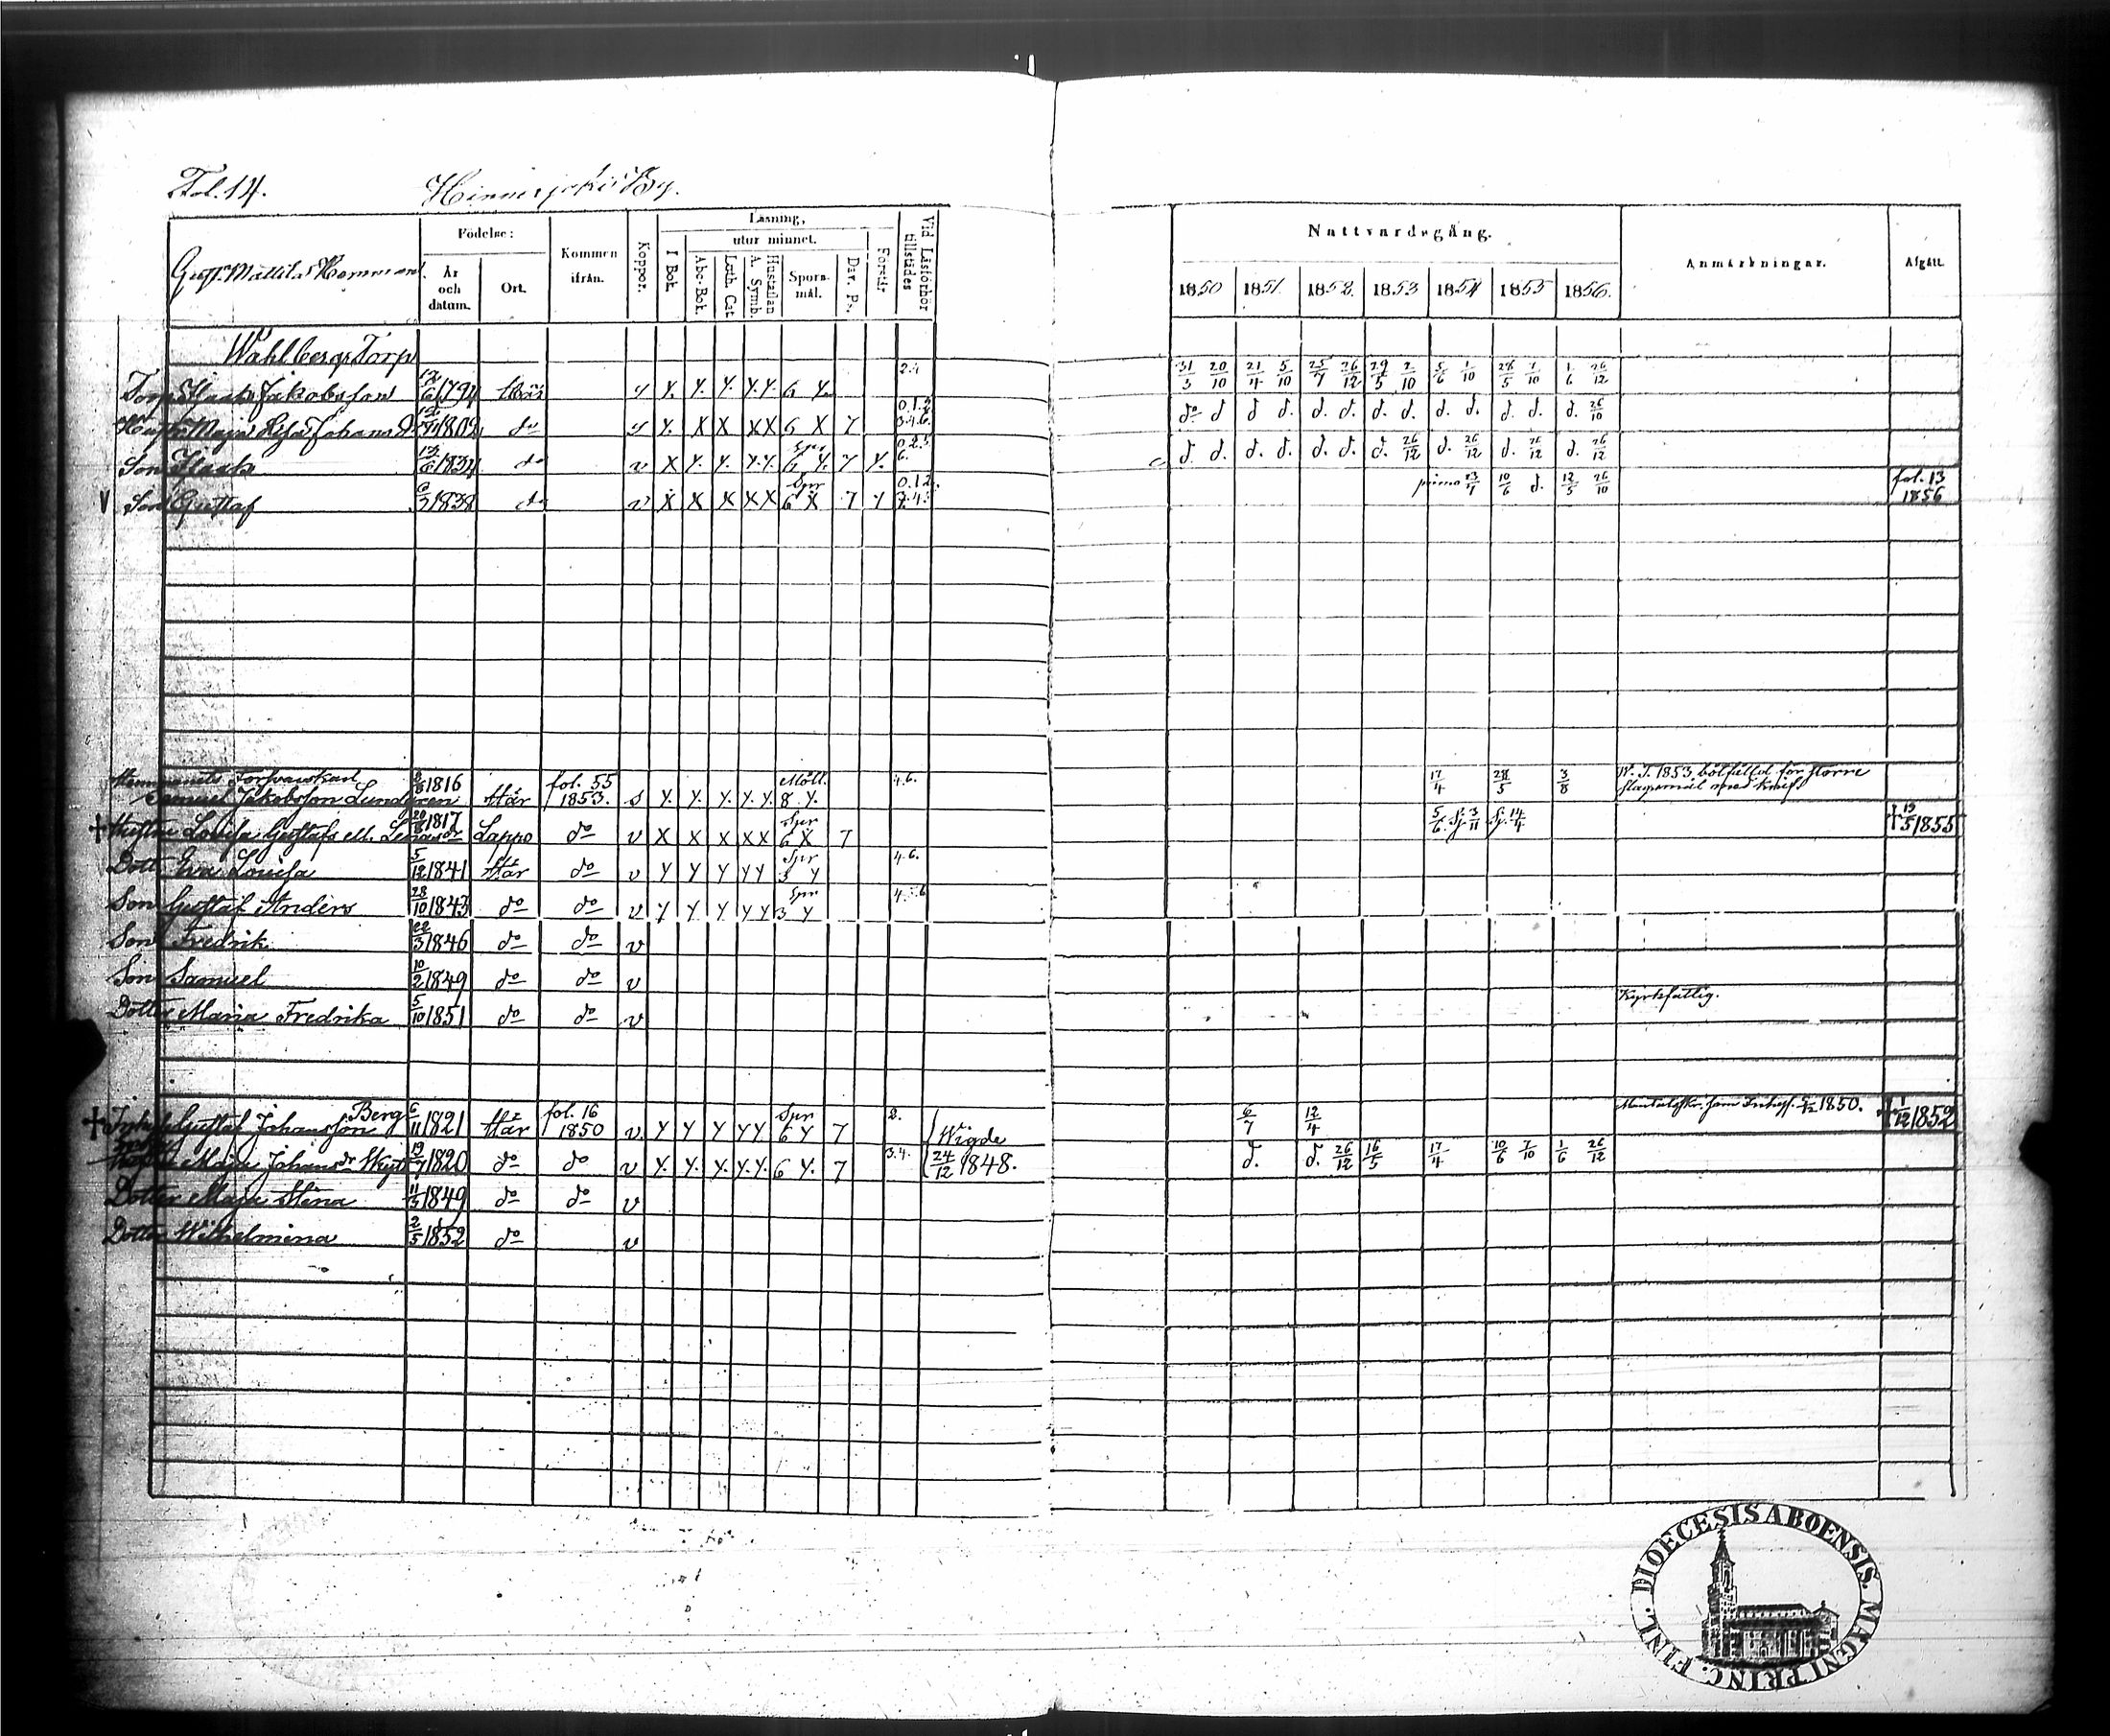 Fol. 14. Hinnerjoki By.
Födelse: Kommen ifrån. Koppor. Läsning, Vid Läsförhör tillstädes
År och datum. Ort. I Bok. utur minnet. Förstår
Abc-Bok. Luth. Cat. Hustaflan A. Symb. Spörsmål. Dav. Ps.
Nattvardsgång. Anmärkningar. Afgått.
1850 1851 1852 1853 1854 1855 1856
Gust. Mattilas Hemman
Wahlbergs Torp
Torp. Isaak Jakobsson 6 1794 Här y y. y. y. y.y. 6 y. 2.4 31/3 20/10 21/4 5/10 25/7 26/12 29/5 2/10 5/6 1/10 28/5 7/10 1/6 26/12
Hustru Maja Lisa Johans D. 1802 do y y. X X XX 6 X 7 0.1.2 3.4.6. do d d d. d. d. d. d. d. d. d. d. d. 26/10
Son Isaak 13/6 1834 do v X y. y. y.y. Spr 6 y. 7 y. 0.2.5 6. d. d. d. d. d. d. d. 26/12 d. 26/12 d. 26/12 d. 26/12
V Son Gustaf 6/3 1838 do v X X X XX Spr 6 X 7 y 0.1.2. 3.4. primo 23/7 10/6 d. 12/5 26/10 fol. 13 1856
Hemmanets Torfvarskarl
Samuel Jakobsson Lundgren 1816 Här fol. 55 1853. s y. y. y. y.y. Mölt. 8 y. 4.6. 17/4 28/5 3/8 W. T. 1853 bötfälld för större slagsmål med knif.
† Hustru Lovisa Gustafs ell. Lenas dr 20/8 1817 Lappo do v X X X XX Spr 6 X 7 5/6. Sj. 3/11 Sj. 14/4 † 19/5 1855
Dott. Eva Lovisa 5/12 1841 Här do v y y y yy Spr 3 y 4.6.
Son Gustaf Anders 28/10 1843 do do v y y y yy Spr 3 y 4.6
Son Fredrik 22/3 1846 do do v
Son Samuel 10/2 1849 do do v
Dotter Maria Fredrika 5/10 1851 do do v Kyrkfattig.
† Gustaf Johansson Berg 6/11 1821 Här fol. 16 1850 v. y y y yy Spr 6 y 7 2. Wigde 6/7 12/4 1850. † 1/12 1852
Maja Johans dr Skytt 19/7 1820 do do v y. y. y. y.y. 6 y. 7 3.4. 24/12 1848. d. d. 26/12 16/5 17/4 10/6 7/10 1/6 26/12
Dotter Maja Stina 11/3 1849 do do v
Dotter Wilhelmina 2/5 1852 do v
DIOECESIS ABOENSIS. MAGNI PRINC. FINL.